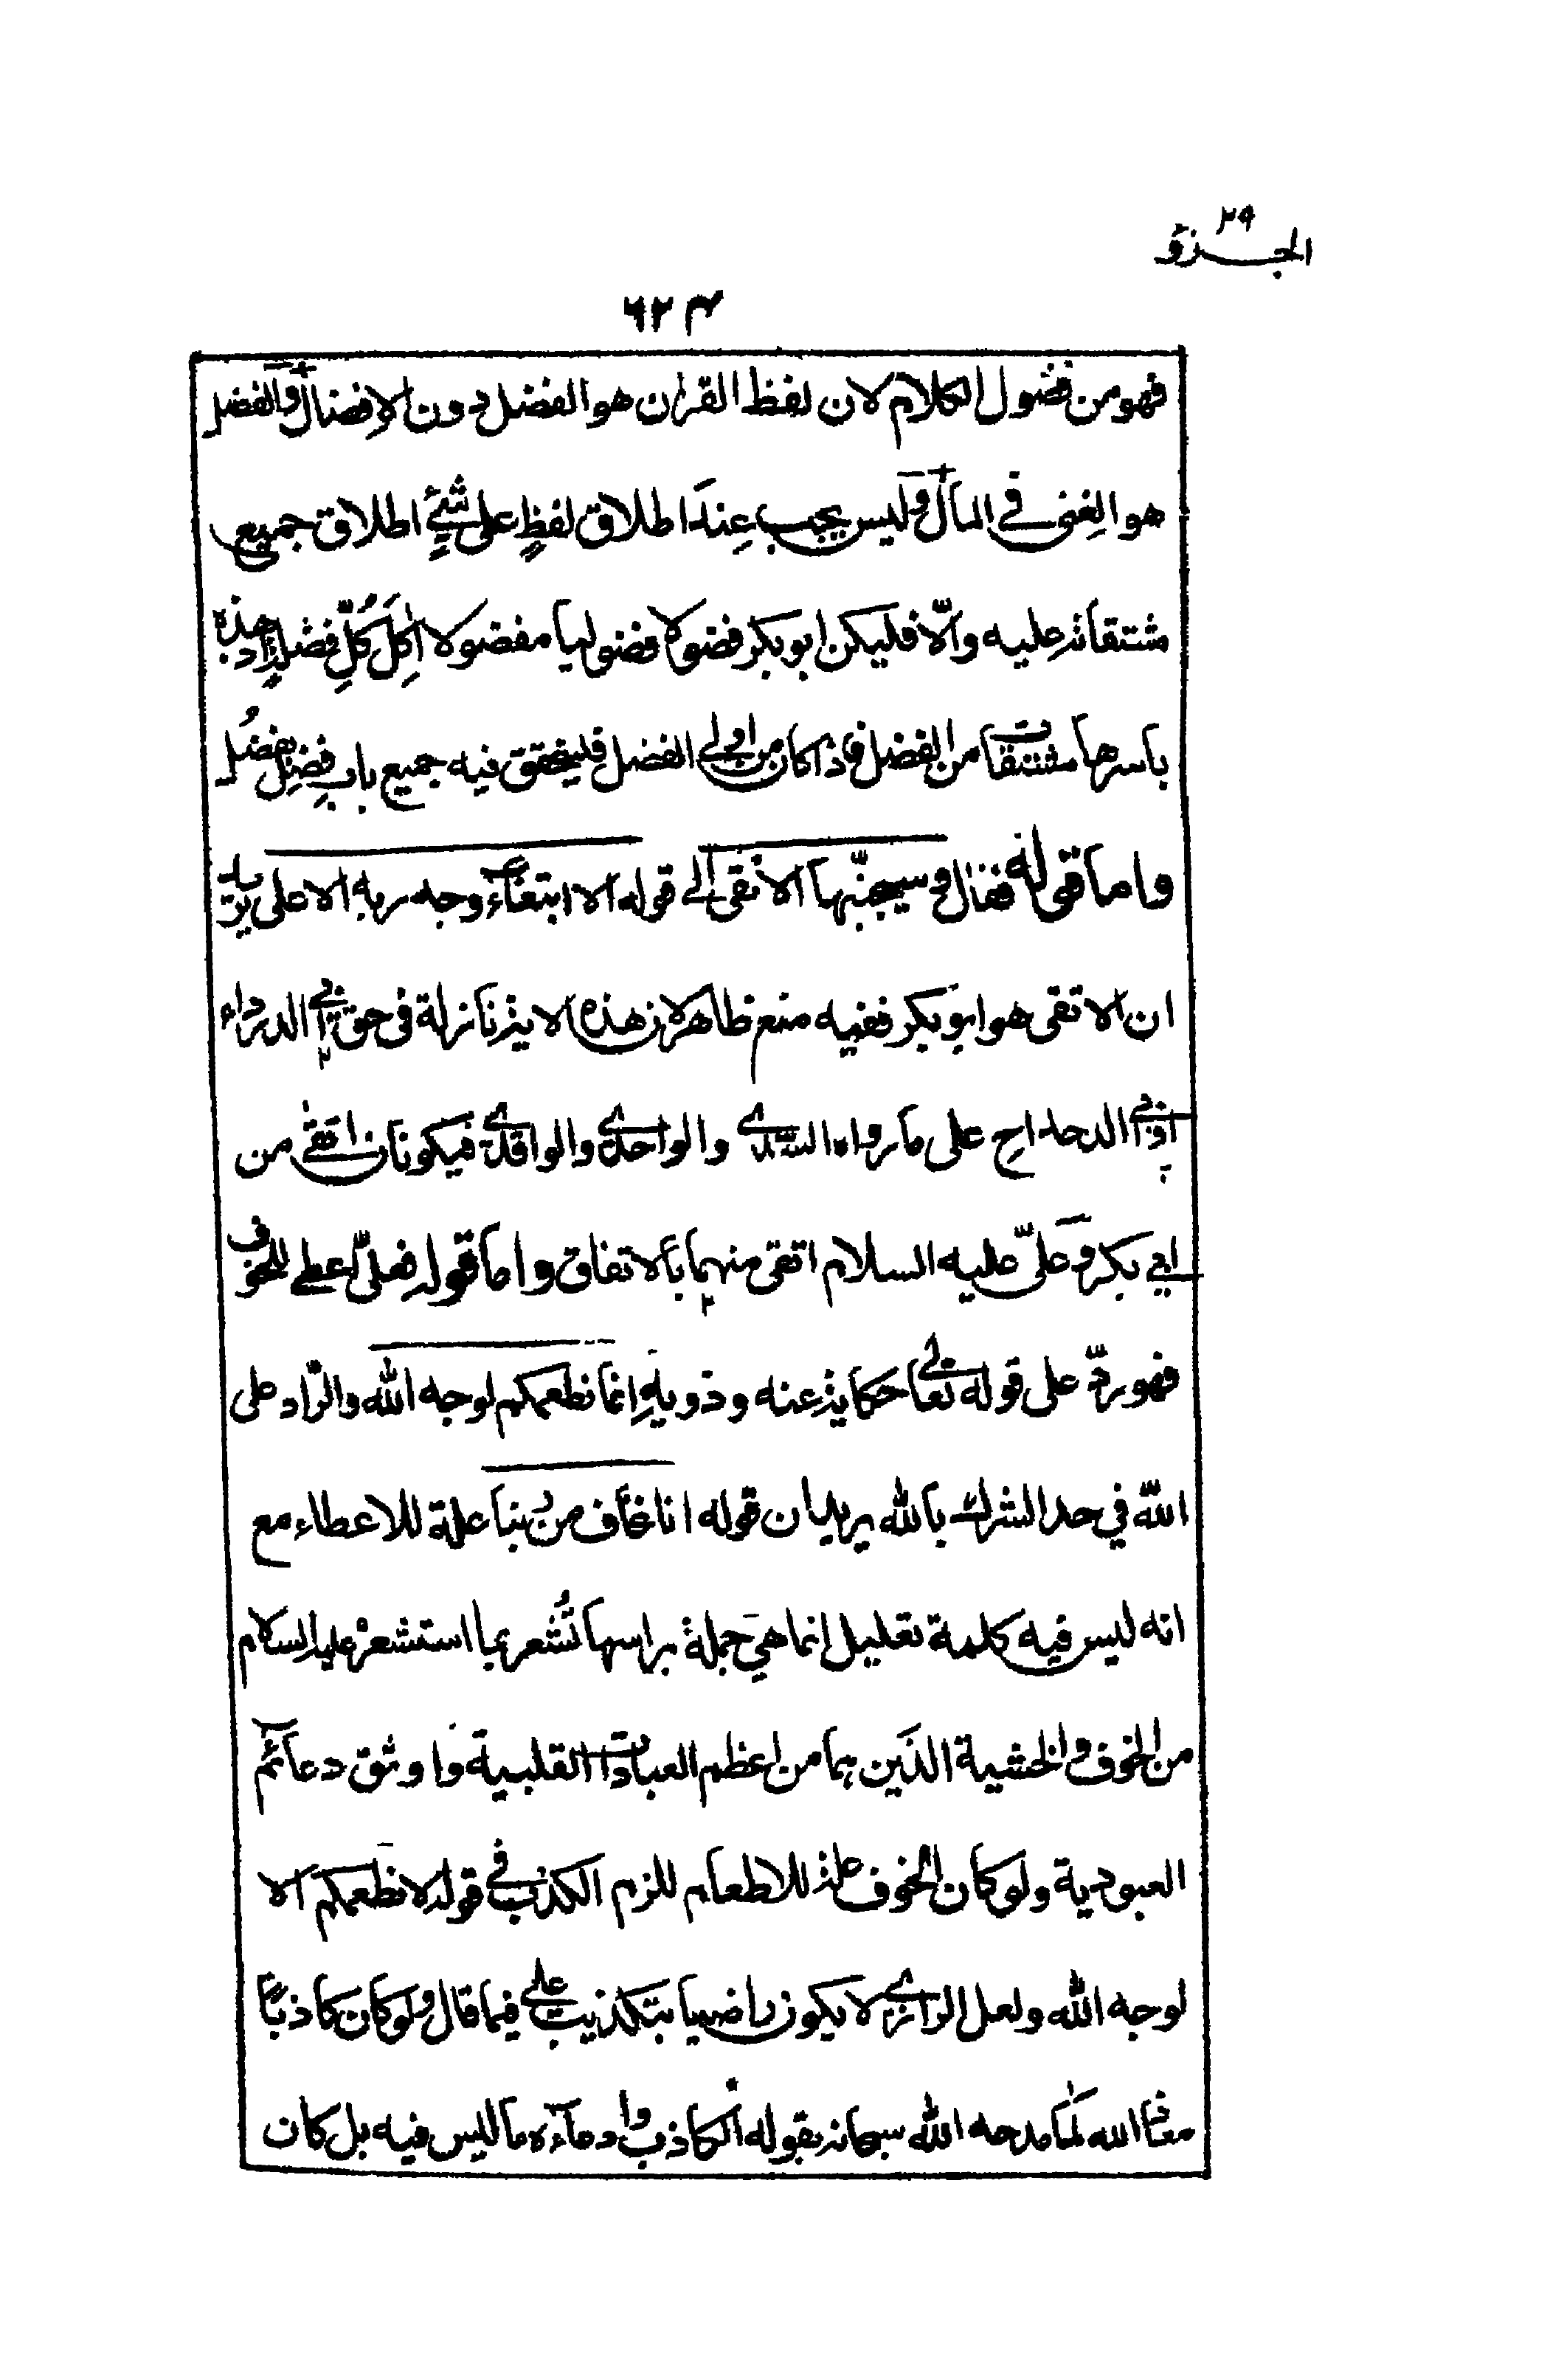 ٢٩
الجـزؤ
٦٢٣
فهو من فضول الكلام لان لفظ القرآن هو الفضل دون الإفضال والفضل
هو الغِنى في المال وليس يجب عِندَ اطلاق لفظٍ على شئٍ اطلاق جميع
مشتقاته عليه والّا فليكن ابو بكر فضولا فضوليا مفضولا اكل كلّ فضلةٍ اذ هذه
باسرها مشتقات من الفضل فاذا كان من اولي الفضل فليتحقق فيه جميع باب فضِل يفضُل
واما قوله فقال وسيجنّبها الاتقى الى قوله الا ابتغاء وجه ربه الاعلى يريد
ان الاتقى هو ابو بكر ففيه منع ظاهر لان هذه الاية نازلة في حق ابي الدرداء
او ابي الدحداح على ما رواه السّدي والواحدي والواقدي فيكونان اتقى من
ابي بكر وعليّ عليه السلام اتقى منهما بالاتفاق واما قوله فعليّ اعطى للخوف
فهو ردّ على قوله تعالى حكاية عنه وذويهِ انما نطعمكم لوجه الله والرّاد على
الله في حد الشرك بالله يريد ان قوله انا نخاف من ربنا علة للاعطاء مع
انه ليس فيه كلمة تعليل انما هي جملة براسها تُشعر بما استشعر عليه السلام
من الخوف والخشية الذَين هما من اعظم العبادات القلبية واوثق دعائم
العبودية ولو كان الخوف علة للاطعام للزم الكذب في قوله لا نطعمكم الا
لوجه الله ولعل الرازي لا يكون راضيا بتكذيب علي فيما قال ولو كان كاذبًا
معاذ الله لما مدحه الله سبحانه بقوله الكاذب وادعاءه ما ليس فيه بل كان